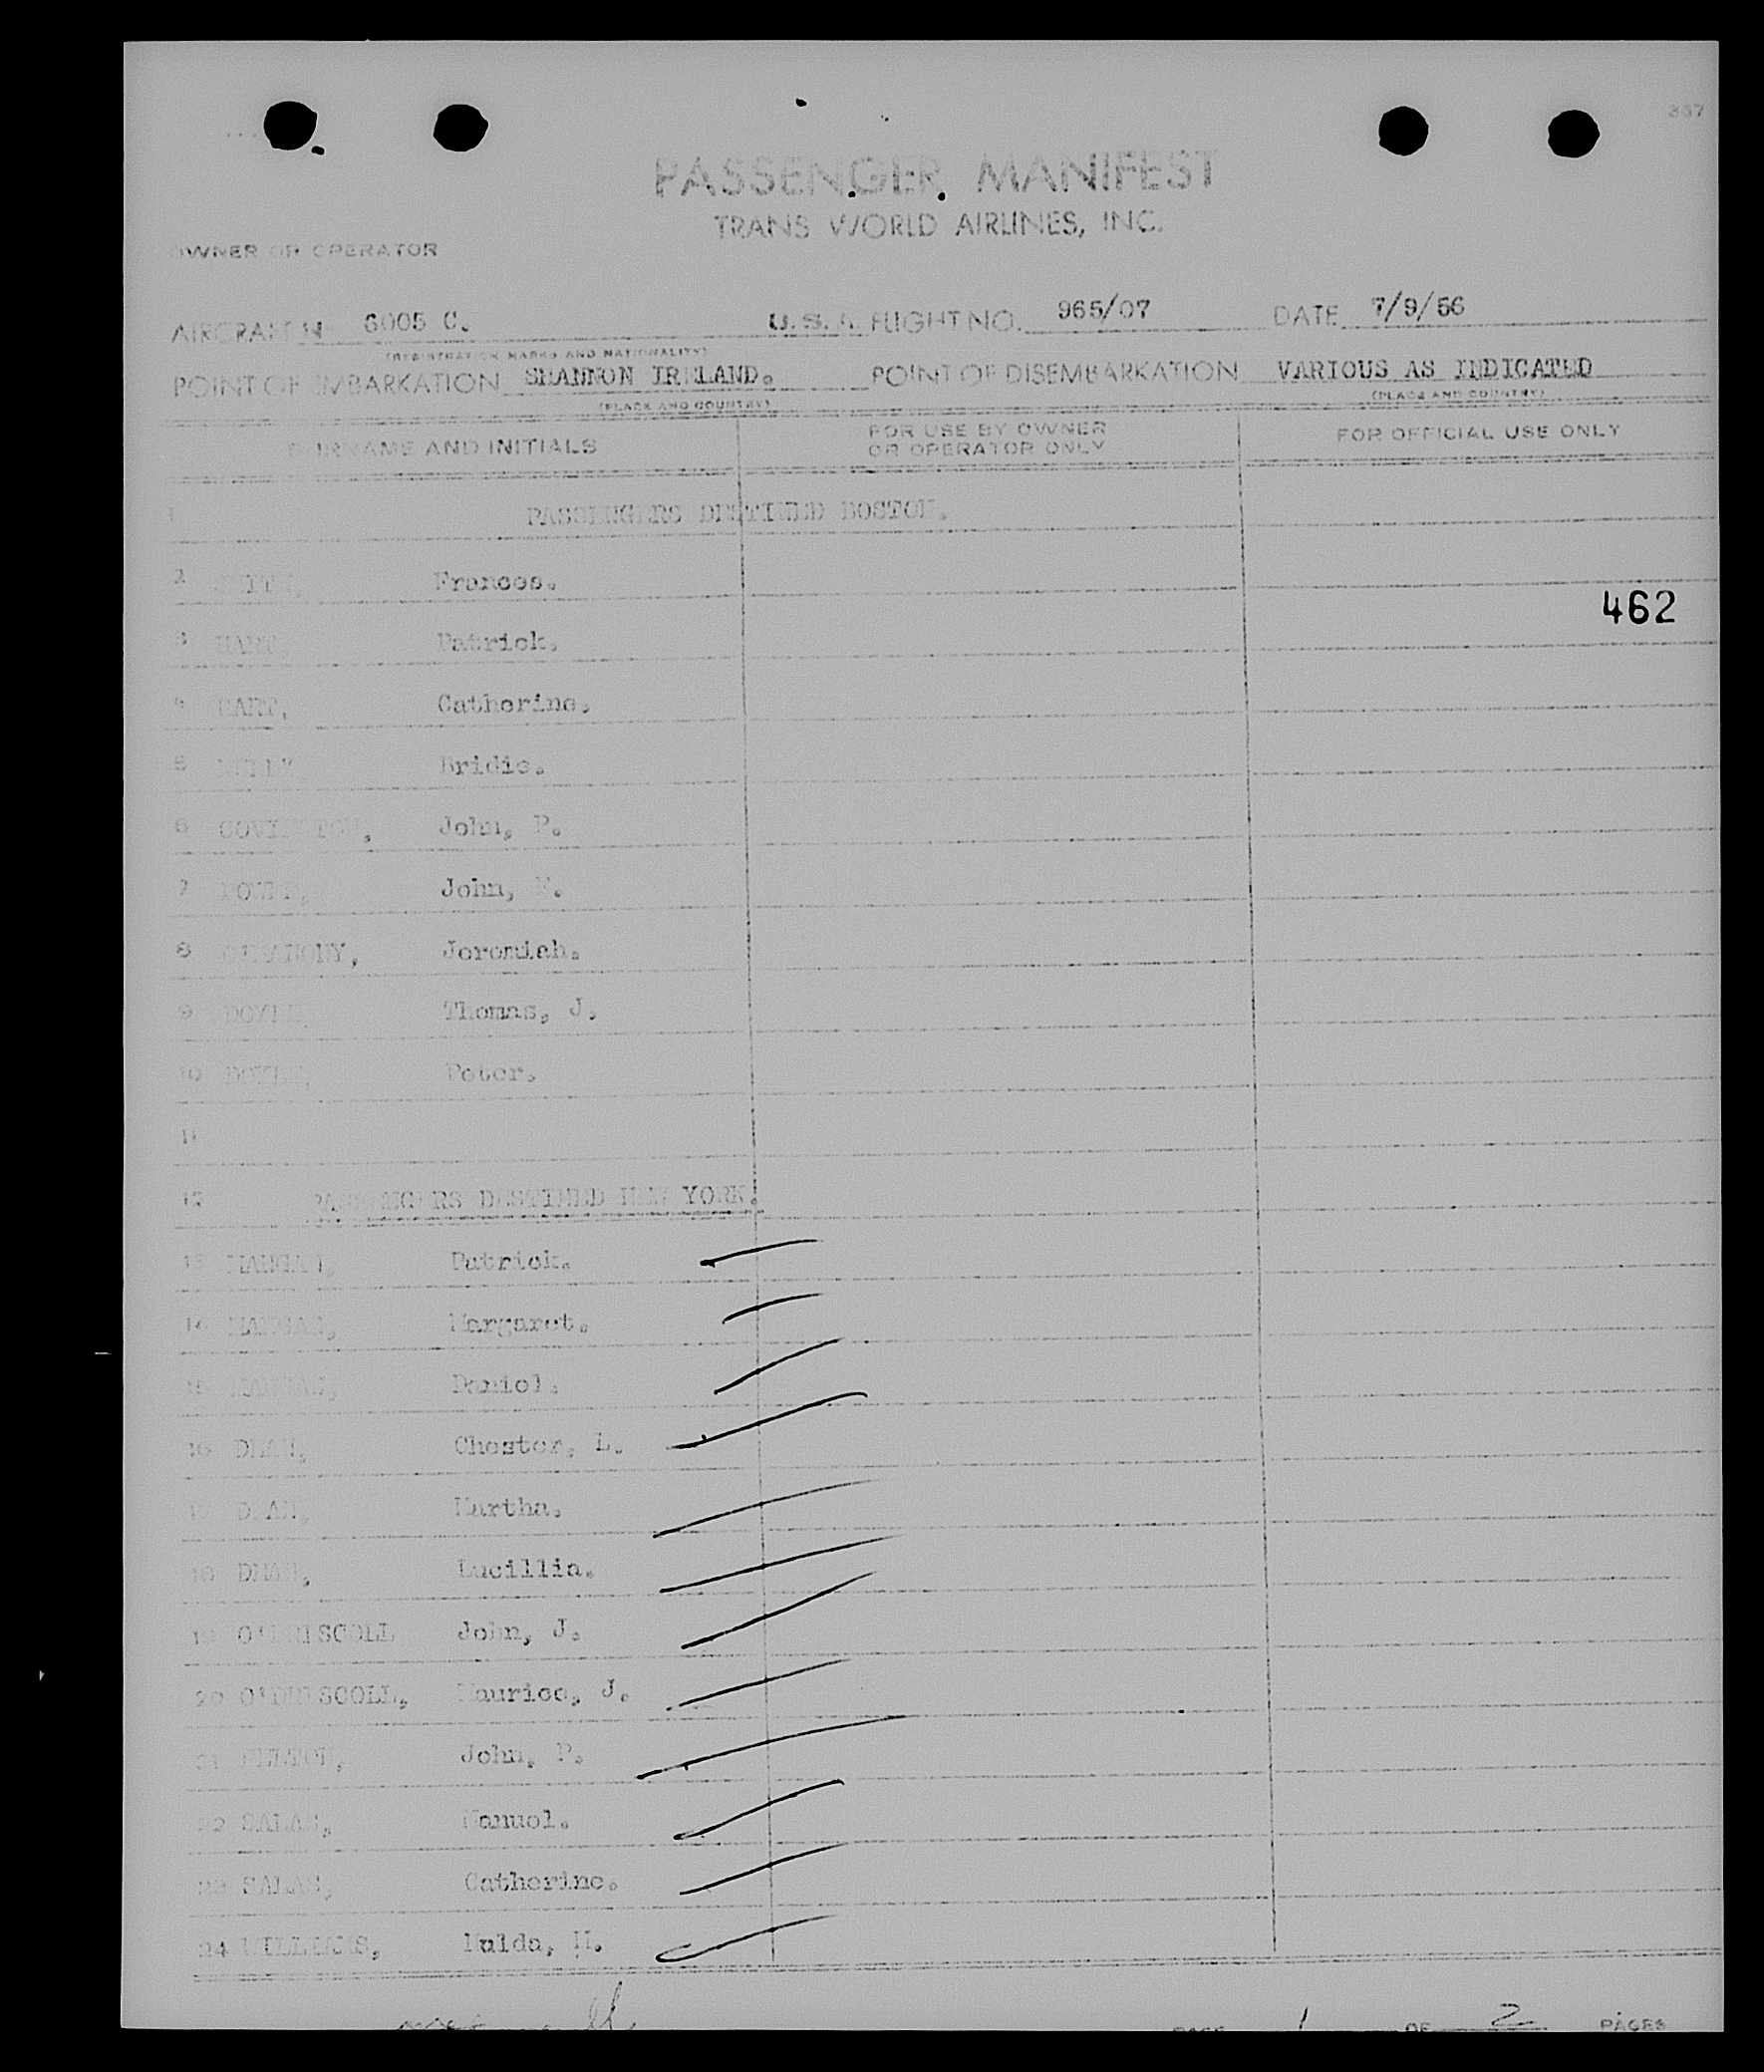 337
PASSENGER MANIFEST
TRANS WORLD AIRLINES, INC.
OWNER OR OPERATOR
AIRCRAFT N 6005 C. U.S.A. FLIGHT NO. 965/07 DATE 7/9/56
(REGISTRATION MARKS AND NATIONALITY)
POINT OF EMBARKATION SHANNON IRELAND. POINT OF DISEMBARKATION VARIOUS AS INDICATED
(PLACE AND COUNTRY) (PLACE AND COUNTRY)
SURNAME AND INITIALS FOR USE BY OWNER OR OPERATOR ONLY FOR OFFICIAL USE ONLY
1 PASSENGERS DESTINED BOSTON.
2 Frances.
462
3 HART, Patrick.
4 HART, Catherine.
5 Bridie.
6 COVINGTON, John, P.
7 John,
8 O'MAHONY, Jeremiah.
9 DOYLE Thomas, J.
10 Peter.
11
12 PASSENGERS DESTINED NEW YORK.
13 MANGAN, Patrick.
14 MANGAN, Margaret.
15 MANGAN, Daniel.
16 DEAN, Chester, L.
17 DEAN, Martha.
18 DEAN, Lucillia.
19 O'DRISCOLL John, J.
20 O'DRISCOLL, Maurice, J.
21 John, P.
22 SALAS, Manuel.
23 SALAS, Catherine.
24 WILLIAMS, Hulda, H.
PAGE 1 OF 2 PAGES